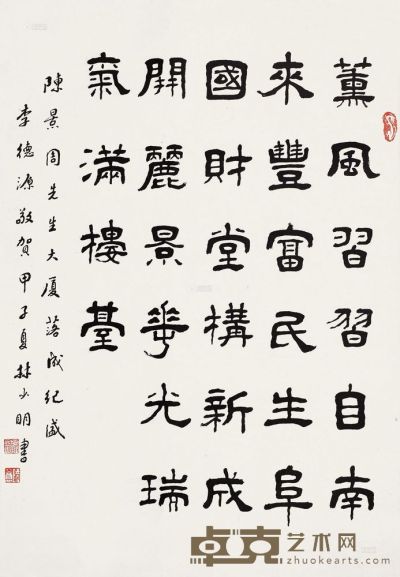 薰風習習自南
來豐富民生阜
國財堂構新成
開麗景華光瑞
氣滿樓臺
陳景周先生大廈落成紀盛
李德源敬賀甲子夏林少明書
卓克艺术网
www.zhuokearts.com